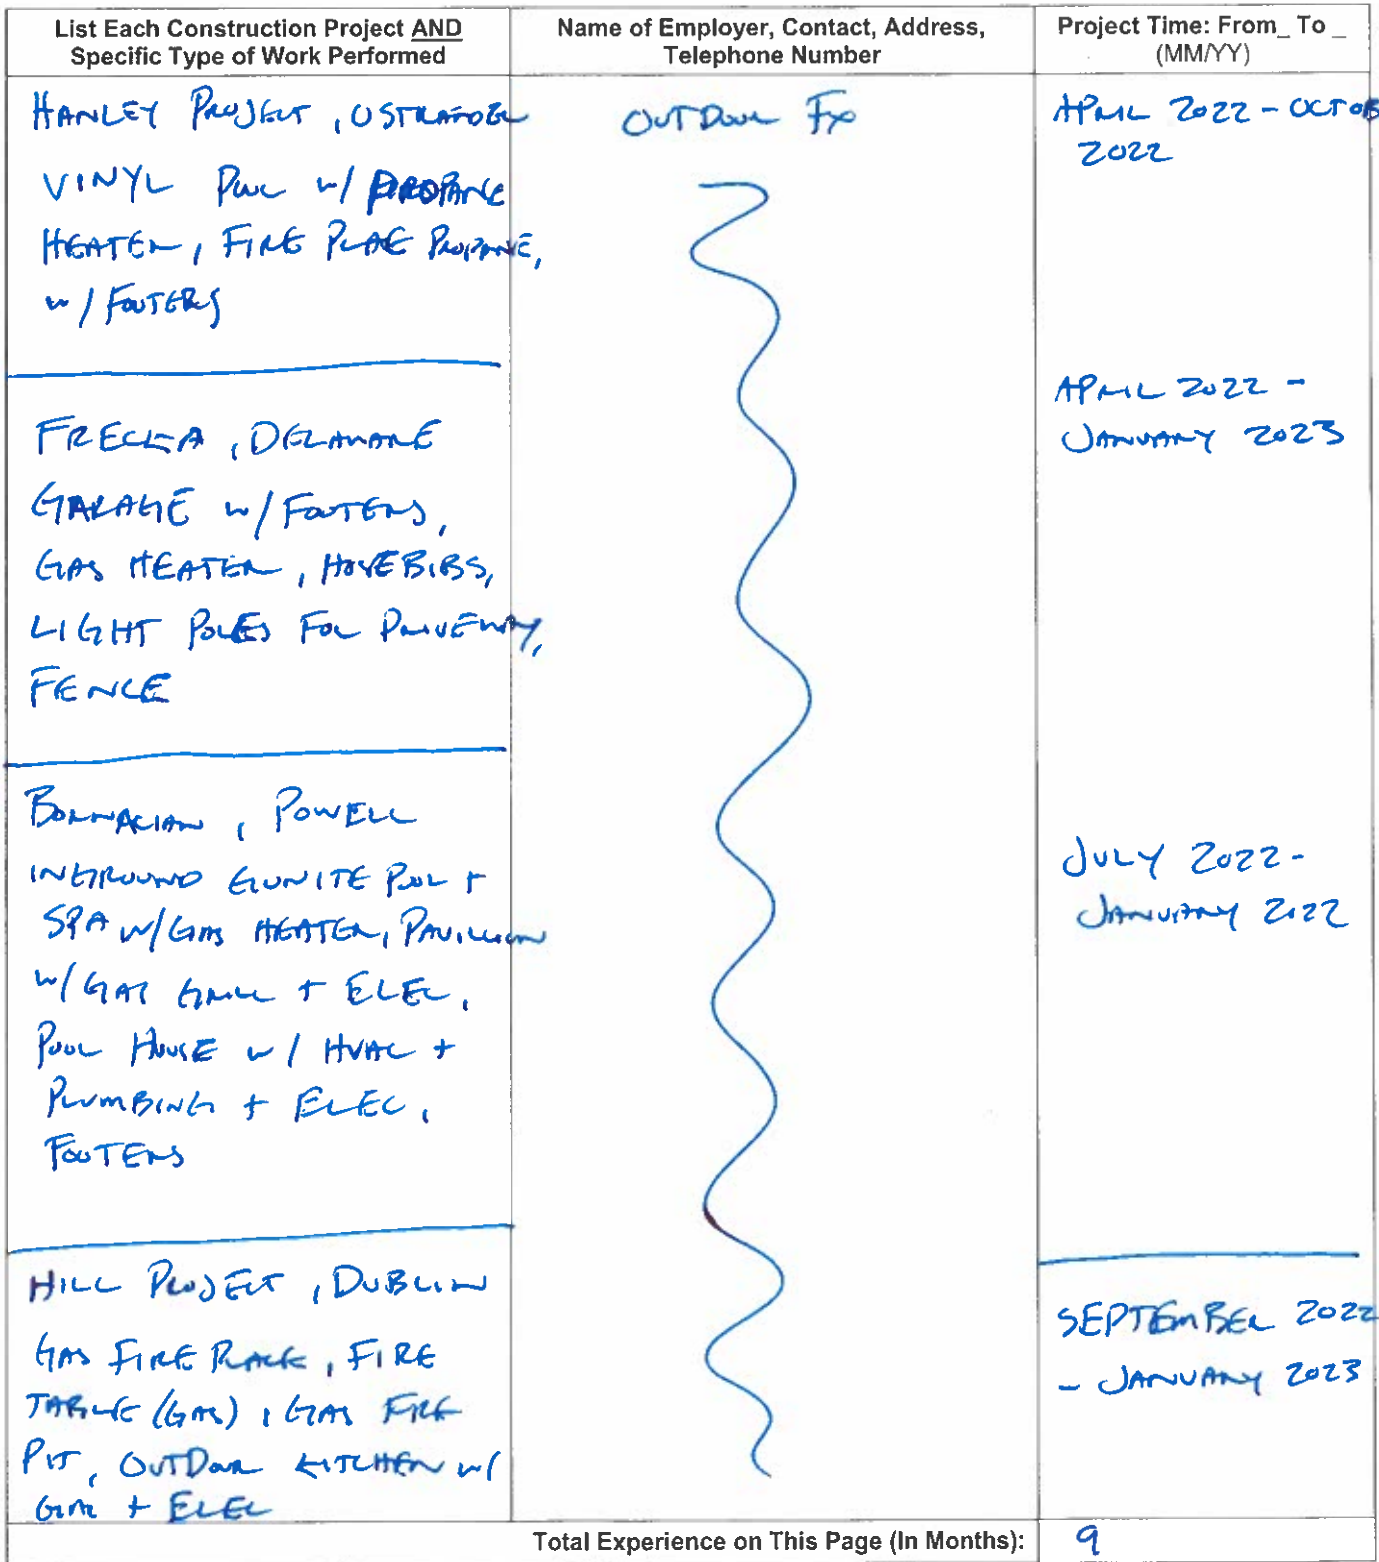 List Each Construction Project AND
Specific Type of Work Performed
Name of Employer, Contact, Address,
Telephone Number
Project Time: From_ To _
(MM/YY)
HANLEY PROJECT, OSTRANDER
VINYL POOL w/ PROPANE
HEATER, FIRE PLACE PROPANE,
w/ FOOTERS
OUTDOOR FX
APRIL 2022 - OCTOB
2022
DELAWARE
GARAGE w/ FOOTERS,
GAS HEATER, HOSEBIBS,
LIGHT POLES FOR DRIVEWAY,
FENCE
APRIL 2022 -
JANUARY 2023
POWELL
INGROUND GUNITE POOL +
SPA w/ GAS HEATER, PAVILLION
w/ GAS GRILL + ELEC,
POOL HOUSE w/ HVAC +
PLUMBING + ELEC,
FOOTERS
JULY 2022 -
JANUARY 2022
HILL PROJECT, DUBLIN
GAS FIRE PLACE, FIRE
TABLE (GAS), GAS FIRE
PIT, OUTDOOR KITCHEN w/
GAS + ELEC
SEPTEMBER 2022
- JANUARY 2023
Total Experience on This Page (In Months):
9